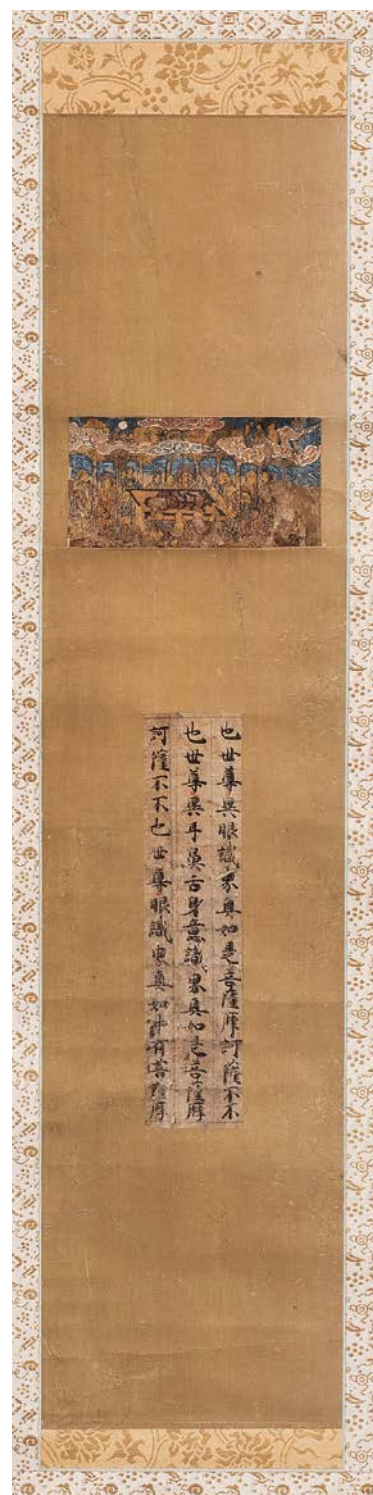 也世尊異眼識界真如是菩薩摩訶薩不不
也世尊異耳鼻舌身意識界真如是菩薩摩
訶薩不不也世尊眼識界真如計有菩薩摩